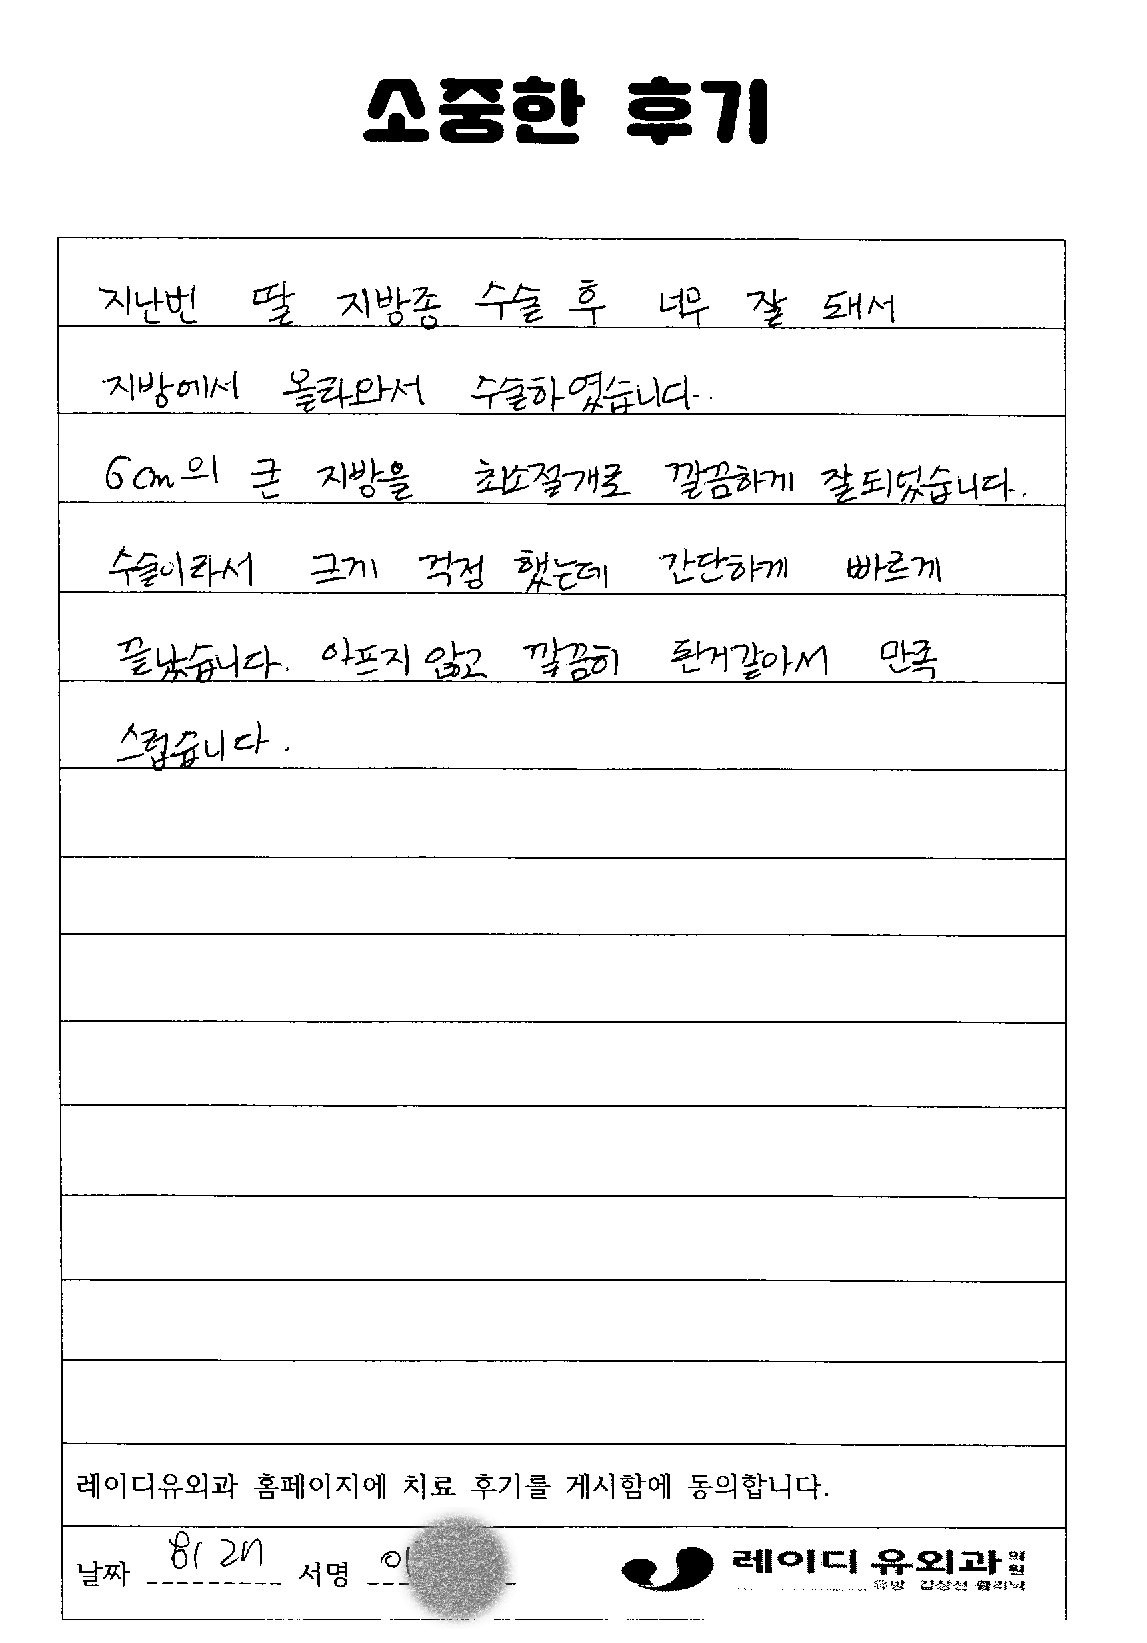 소중한 후기
지난번 딸 지방종 수술 후 너무 잘 돼서
지방에서 올라와서 수술하였습니다.
6cm의 큰 지방을 최소절개로 깔끔하게 잘되었습니다.
수술이라서 크게 걱정 했는데 간단하게 빠르게
끝났습니다. 아프지 않고 깔끔히 된거같아서 만족
스럽습니다.
레이디유외과 홈페이지에 치료 후기를 게시함에 동의합니다.
날짜 8/27 서명 이
레이디유외과 의원
유방 갑상선 클리닉